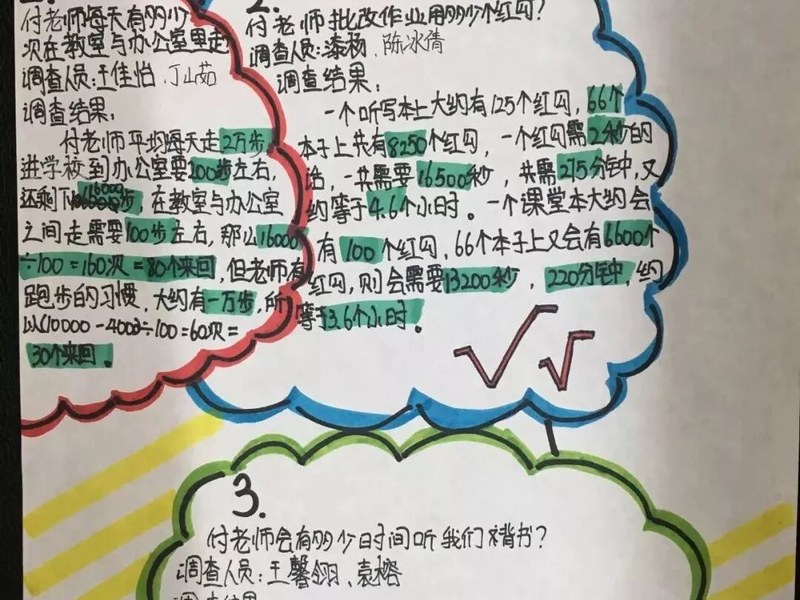 付老师每天有多少
次在教室与办公室里走
调查人员:王佳怡、丁山茹
调查结果:
付老师平均每天走2万步,
进学校到办公室要200步左右,
还剩下16000步,在教室与办公室
之间走需要100步左右,那么16000
÷100=160次=80个来回,但老师有
跑步的习惯,大约有一万步,所
以(10000-400)÷100=60次=
30个来回。
2.
付老师批改作业用多少个红勾?
调查人员:漆杨、陈冰倩
调查结果:
一个听写本上大约有125个红勾,66个
本子上共有8250个红勾,一个红勾需2秒的
话,一共需要16500秒,共需275分钟,又
约等于4.6个小时。一个课堂本大约会
有100个红勾,66个本子上又会有6600个
红勾,则会需要13200秒,220分钟,约
等于3.6个小时。
3.
付老师会有多少日时间听我们背书?
调查人员:王馨翎、袁榕